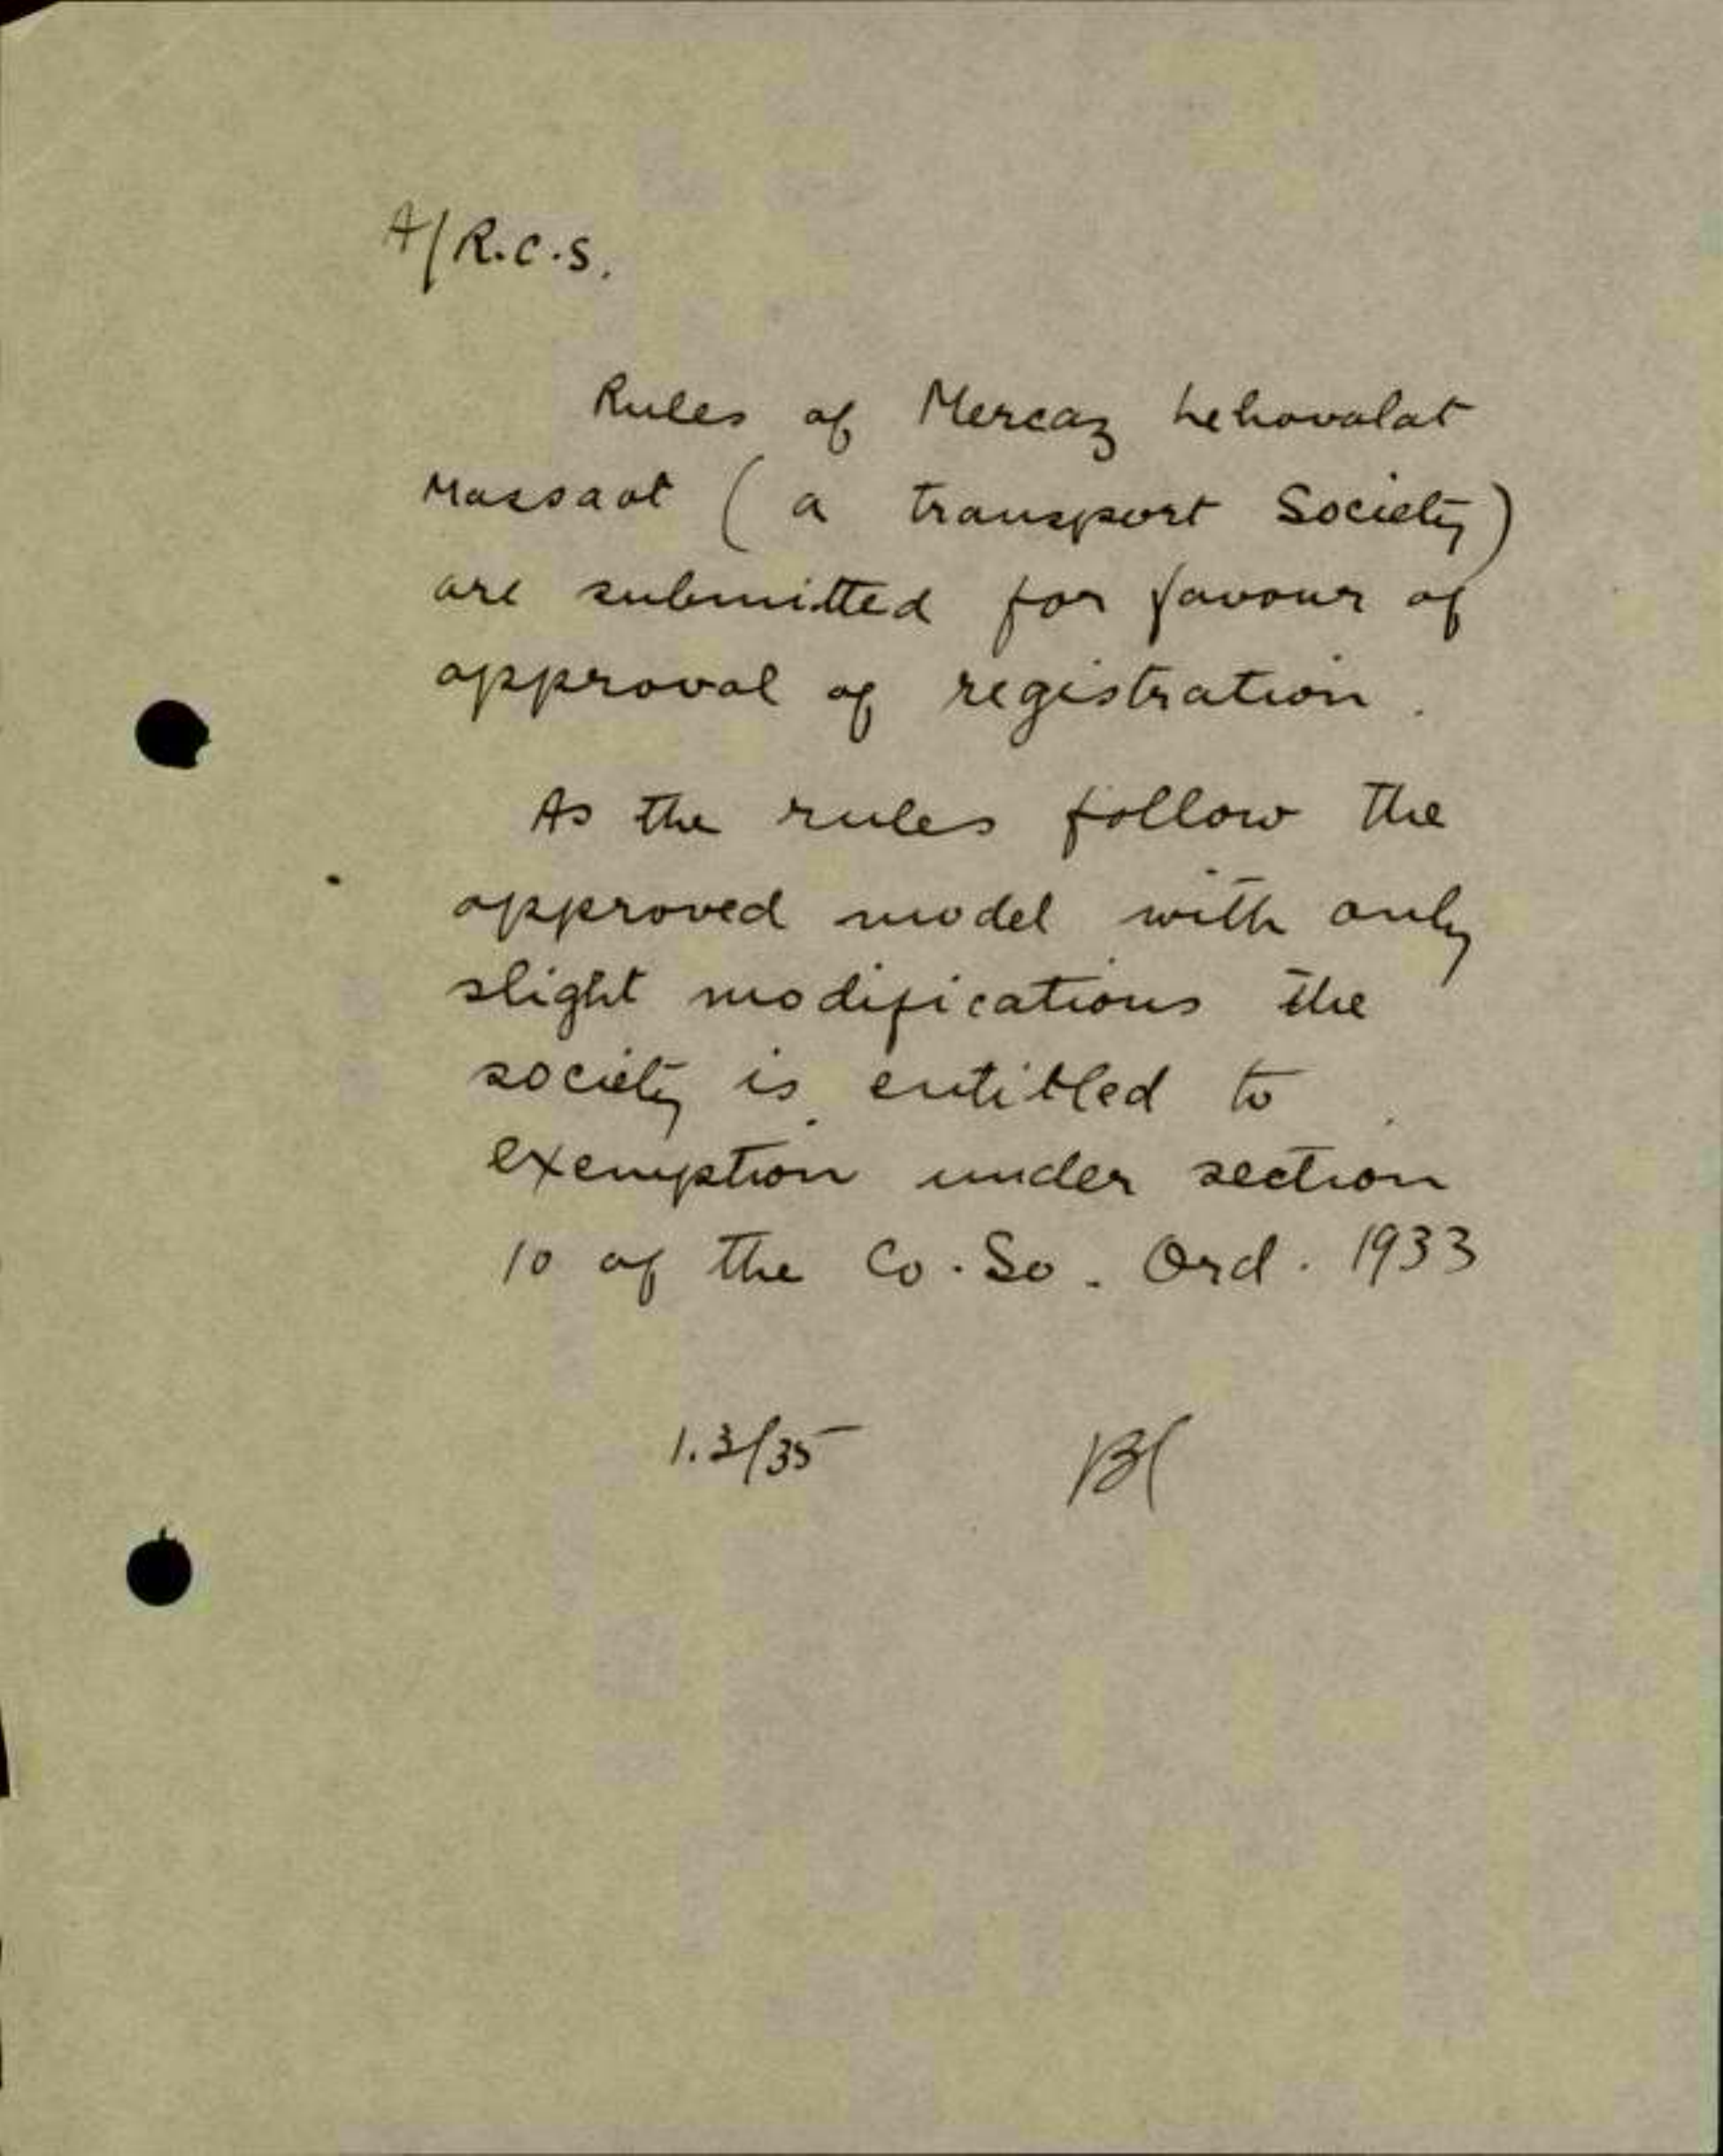 A/R.C.S.
Rules of Mercaz Lehovalat
Massaot (a transport Society)
are submitted for favour of
approval of registration.
As the rules follow the
approved model with only
slight modifications the
society is entitled to
exemption under section
10 of the Co. So. Ord. 1933
1.3/35